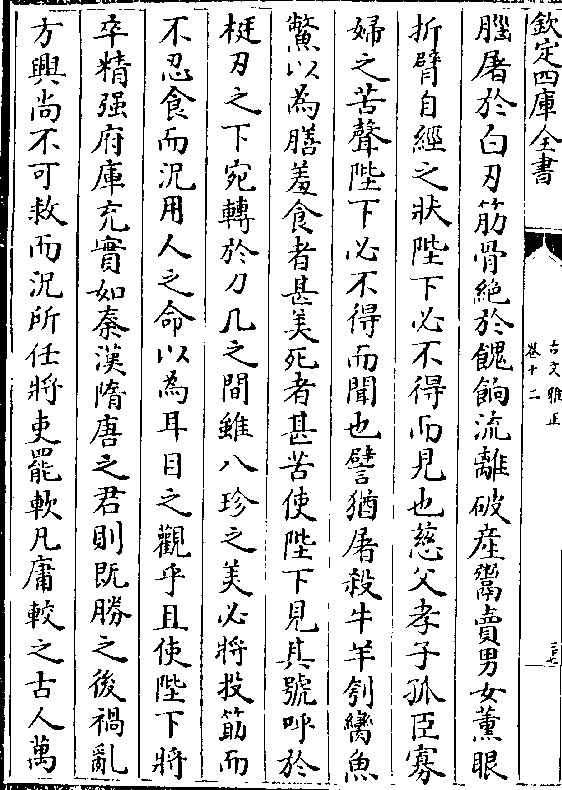 欽定四庫全書
古文雅正
卷十二
腦屠於白刃筋骨絶於餽餉流離破産鬻賣男女薰眼
折臂自經之狀陛下必不得而見也慈父孝子孤臣寡
婦之苦聲陛下必不得而聞也譬猶屠殺牛羊刳臠魚
鱉以為膳羞食者甚美死者甚苦使陛下見其號呼於
梃刃之下宛轉於刀几之間雖八珍之美必將投筯而
不忍食而況用人之命以為耳目之觀乎且使陛下將
卒精强府庫充實如秦漢隋唐之君則既勝之後禍亂
方興尚不可救而況所任將吏罷軟凡庸較之古人萬